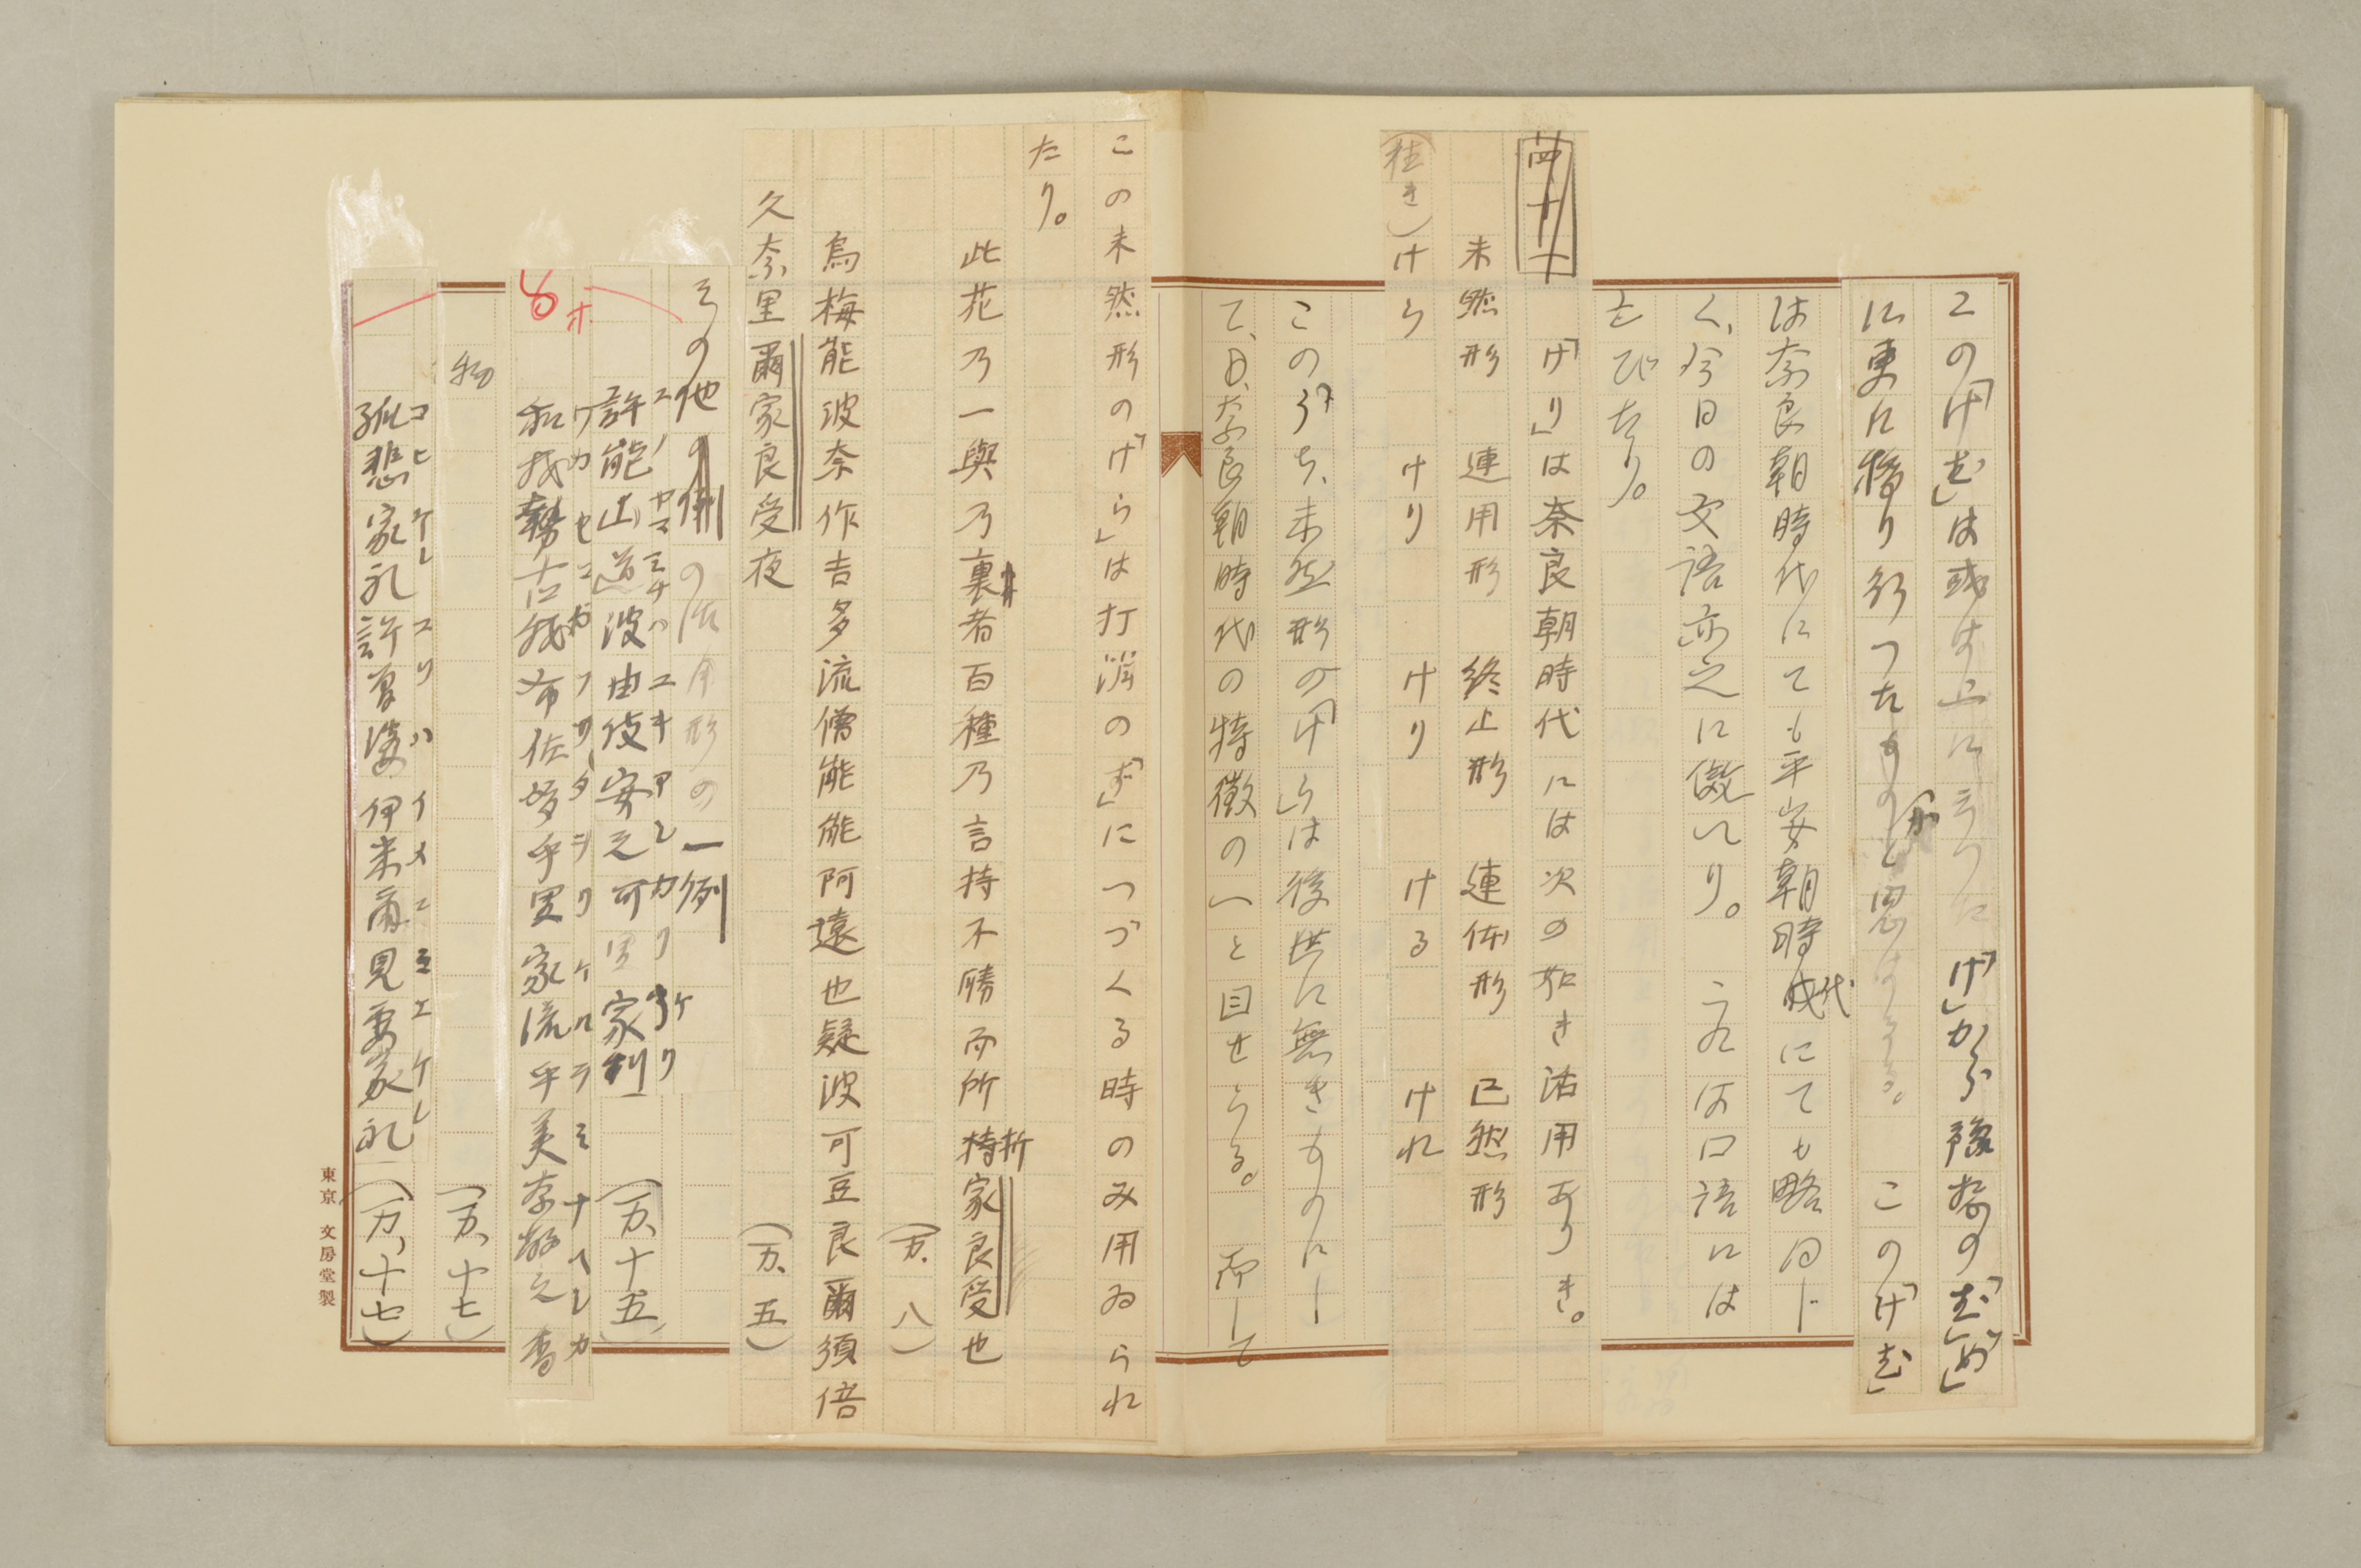 この「けむ」は或は上にうつた「け」から 豫想の「む」「め」
に更に移り行つたものかと思はるる。 この「けむ」
は奈良朝時代にても平安朝時代にても略同じ
く、今日の文語亦之に傚へり。 これは口語には
亡びたり。
四十一
「けり」は奈良朝時代には次の如き活用ありき。
未然形 連用形 終止形 連体形 已然形
けら けり けり ける けれ
このうち、未然形の「けら」は後世に無きものにし
て、奈良朝時代の特徴の一と目せらる。 而して
この未然形の「けら」は打消の「ず」につづくる時のみ用ゐられ
たり。
此花乃一與乃裏者百種乃言持不勝而所折家良受也
(万、八)
烏梅能波奈作吉多流僧能能阿遠也疑波可豆良爾須倍
久奈里爾家良受夜 (万、五)
その他の活用形の一例
許能山道波由伎安之可里家利 (万、十五)
エノヤマミチハユキアシカリケリ
和我勢古我布佐多乎里家流乎美奈敝之香
ワカセコガフサタヲリケルヲミナヘシカ
物 (万、十七)
孤悲家礼許曽婆伊米爾見要家礼 (万、十七)
コヒケレコソハイメニミエケレ
東京 文房堂製